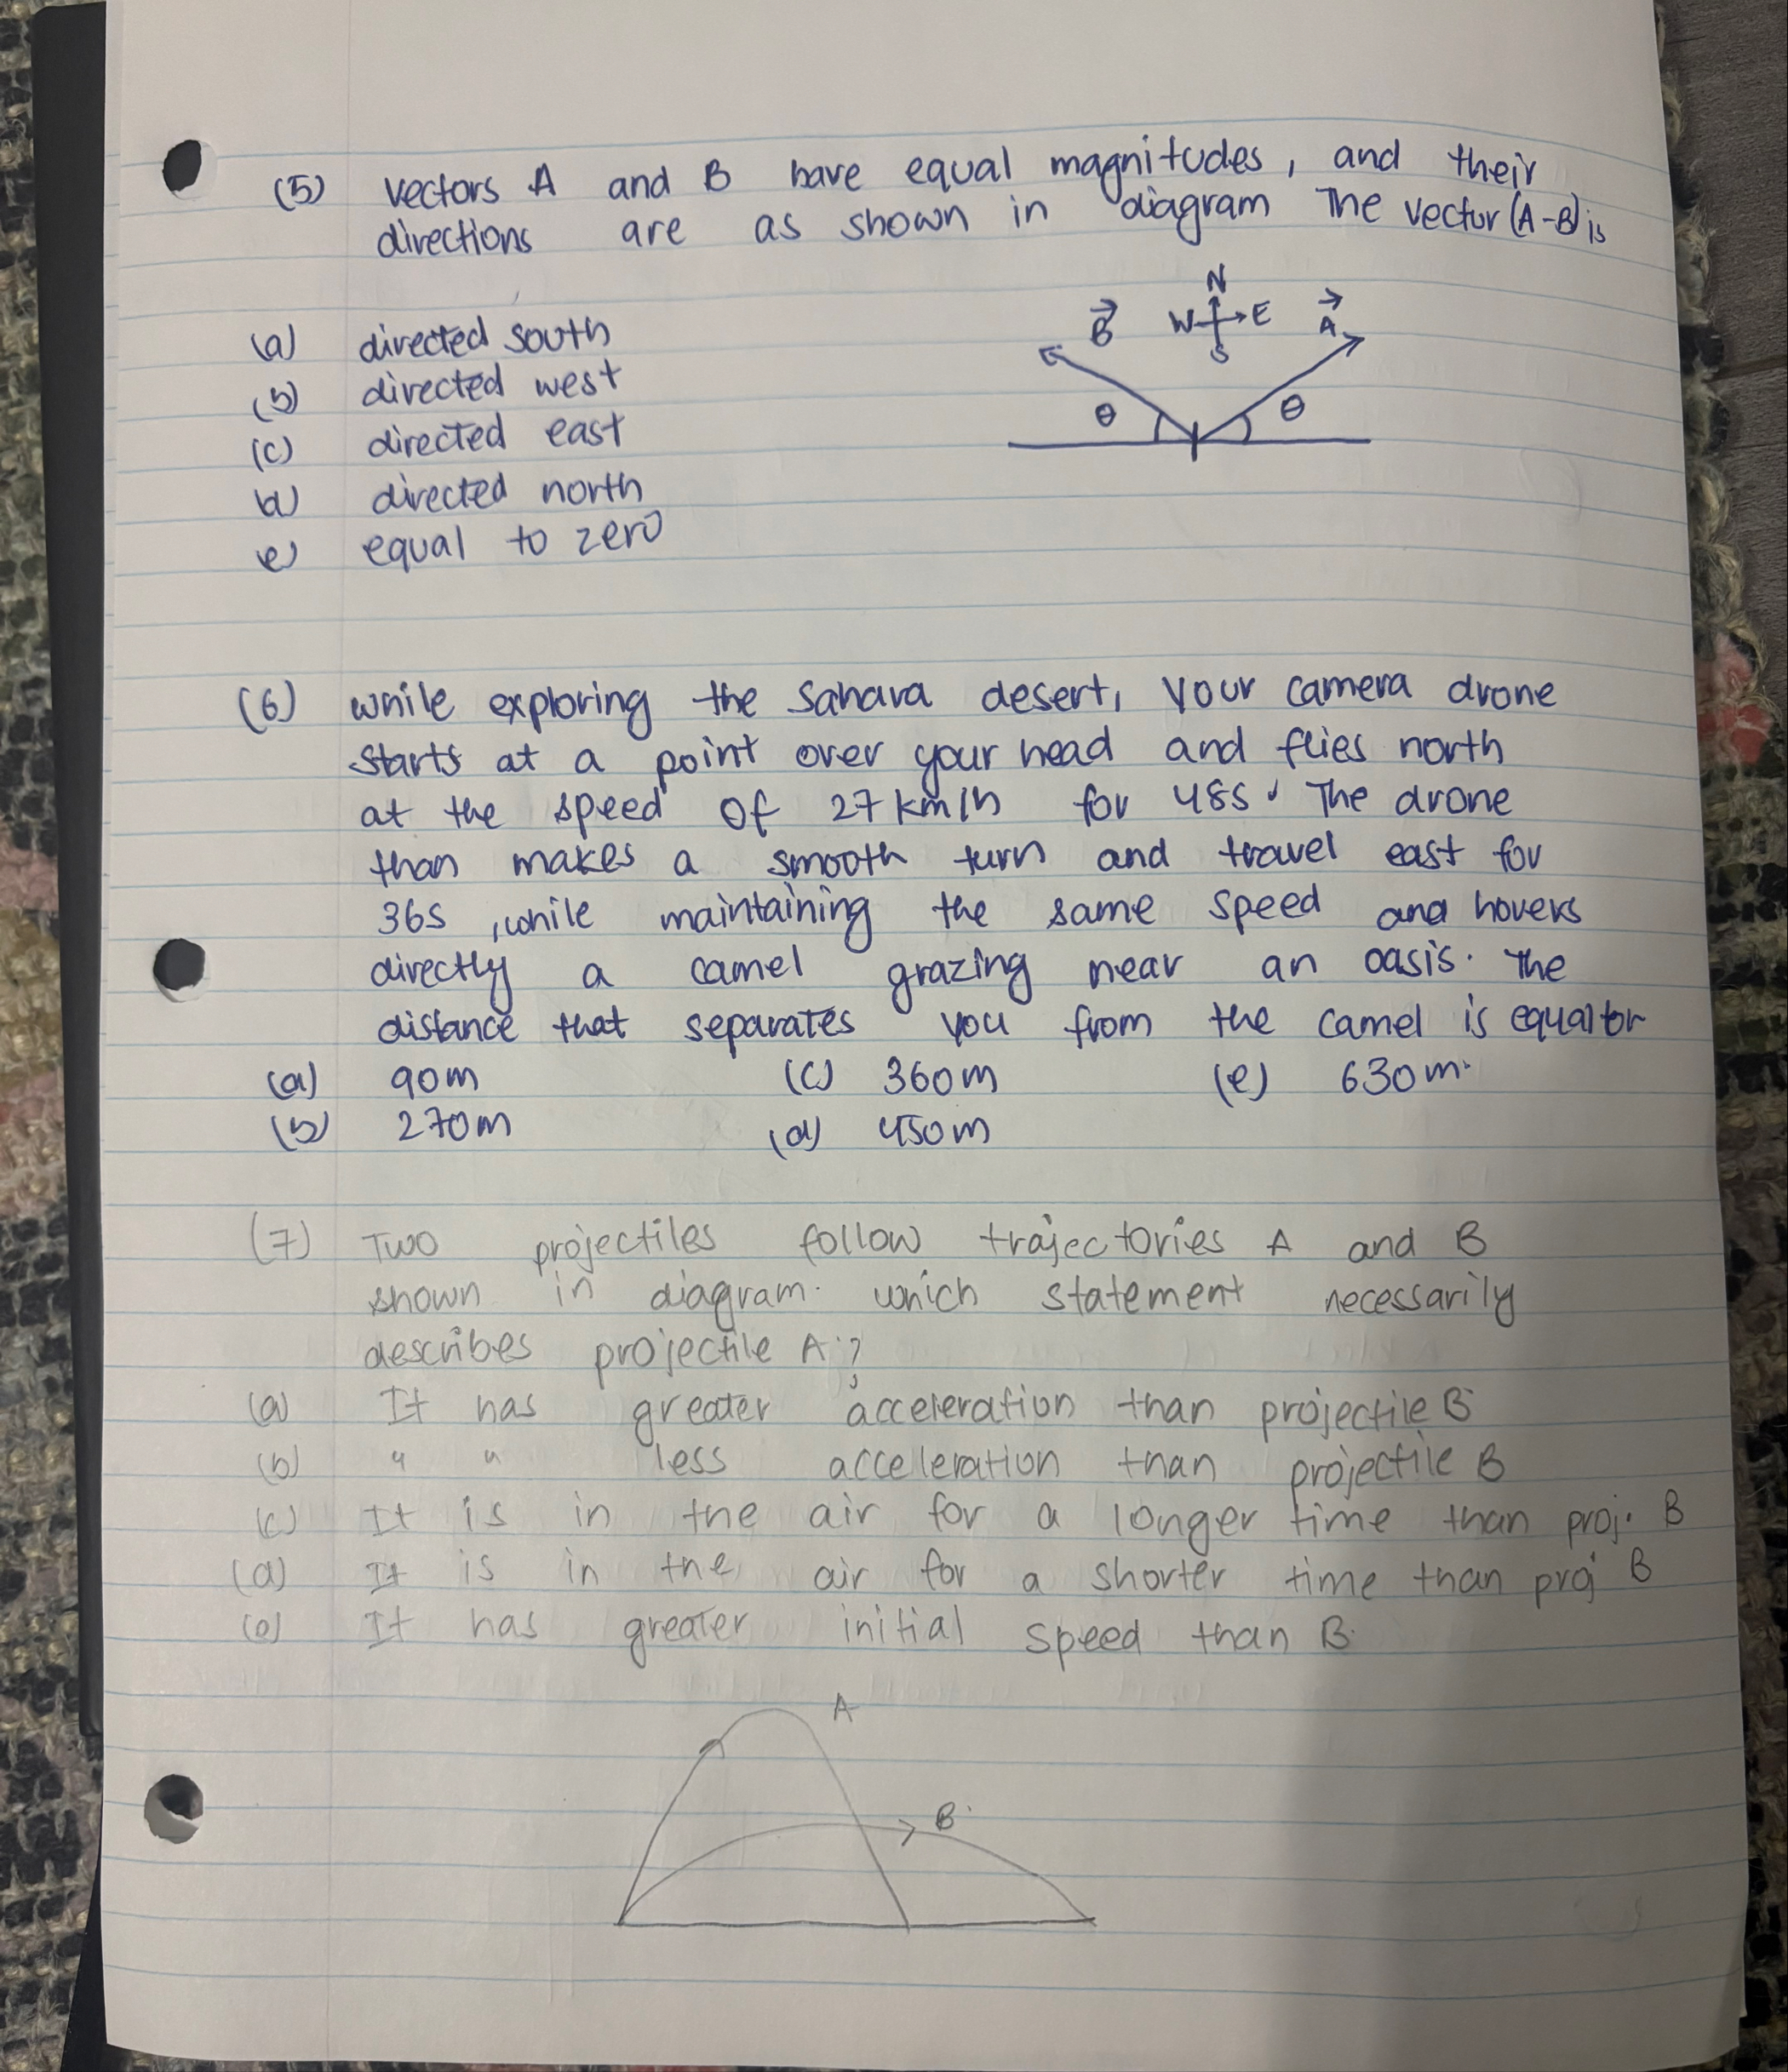 (5) vectors A and B have equal magnitudes, and their
directions are as shown in diagram The vector (A-B) is
N
B W E A
S
θ θ
(a) directed south
(b) directed west
(c) directed east
(d) directed north
(e) equal to zero
(6) while exploring the Sahara desert, your camera drone
starts at a point over your head and flies north
at the speed of 27 km/h for 48s. The drone
than makes a smooth turn and travel east for
36s, while maintaining the same speed and hovers
directly a camel grazing near an oasis. The
distance that separates you from the camel is equal to
(a) 90m (c) 360m (e) 630m.
(b) 270m (d) 450m
(7) Two projectiles follow trajectories A and B
shown in diagram. which statement necessarily
describes projectile A?
(a) It has greater acceleration than projectile B
(b) " " less acceleration than projectile B
(c) It is in the air for a longer time than proj. B
(d) It is in the air for a shorter time than proj B
(e) It has greater initial speed than B.
A
B